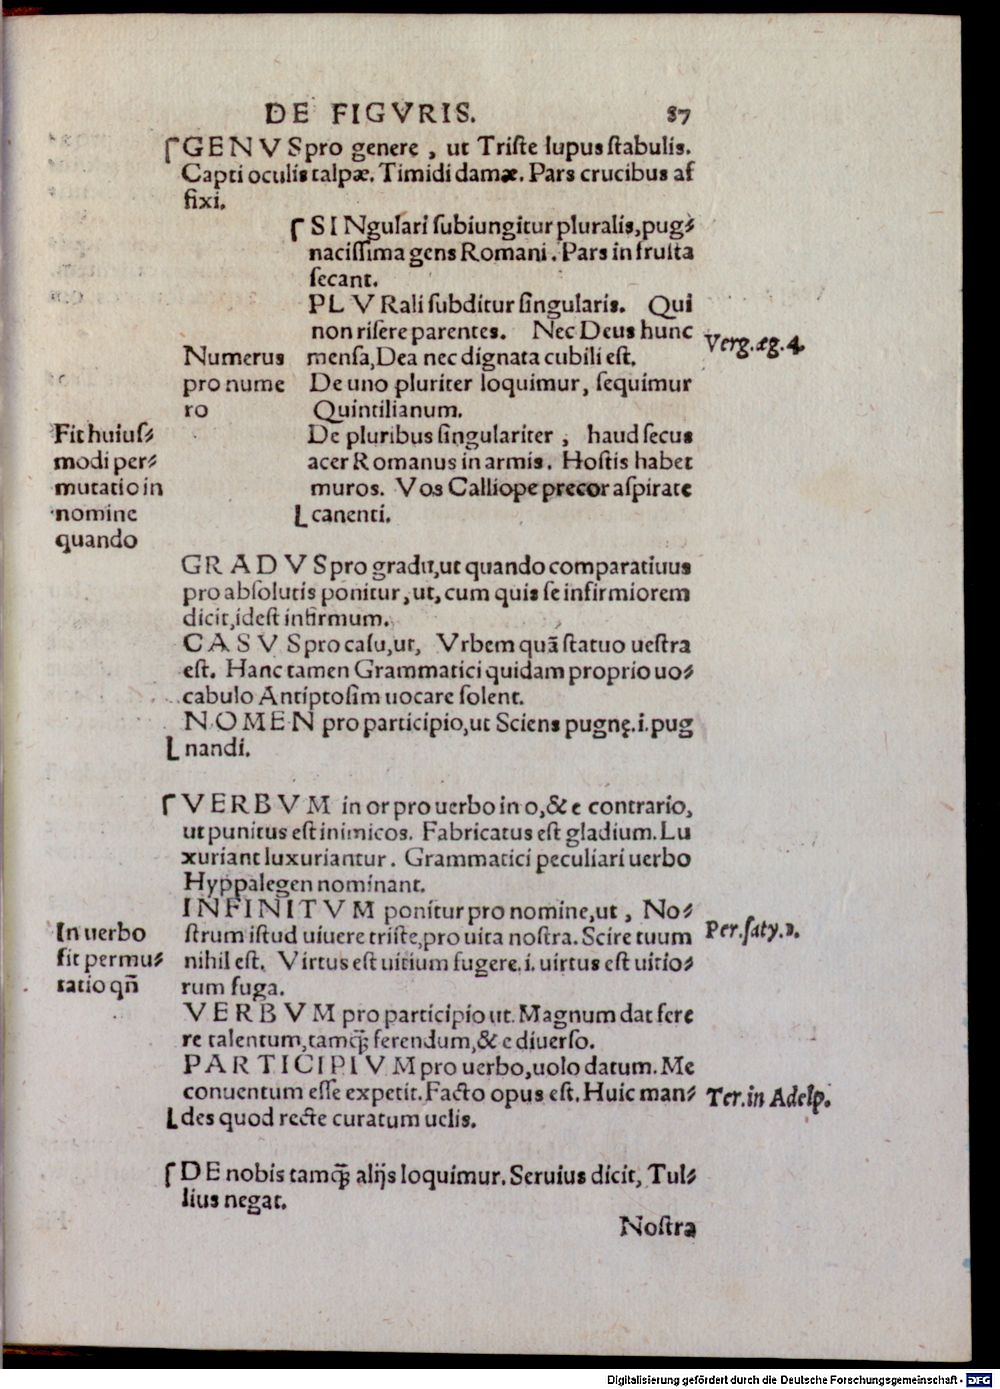 DE FIGVRIS. 87
GENVS pro genere, ut Triſte lupus ſtabulis.
Capti oculis talpæ. Timidi damæ. Pars crucibus af
fixi.
SINgulari ſubiungitur pluralis, pug⸗
naciſſima gens Romani. Pars in fruſta
ſecant.
PLVRali ſubditur ſingularis. Qui
non riſere parentes. Nec Deus hunc
menſa, Dea nec dignata cubili eſt.
Verg. æg. 4.
Numerus
pro nume
ro
De uno pluriter loquimur, ſequimur
Quintilianum.
De pluribus ſingulariter, haud ſecus
acer Romanus in armis. Hoſtis habet
muros. Vos Calliope precor aſpirate
canenti.
Fit huiuſ⸗
modi per⸗
mutatio in
nomine
quando
GRADVS pro gradu, ut quando comparatiuus
pro abſolutis ponitur, ut, cum quis ſe infirmiorem
dicit, ideſt infirmum.
CASVS pro caſu, ut, Vrbem quā ſtatuo ueſtra
eſt. Hanc tamen Grammatici quidam proprio uo⸗
cabulo Antiptoſim uocare ſolent.
NOMEN pro participio, ut Sciens pugnę. i. pug
nandi.
VERBVM in or pro uerbo in o, & e contrario,
ut punitus eſt inimicos. Fabricatus eſt gladium. Lu
xuriant luxuriantur. Grammatici peculiari uerbo
Hyppalegen nominant.
INFINITVM ponitur pro nomine, ut, No⸗
ſtrum iſtud uiuere triſte, pro uita noſtra. Scire tuum
nihil eſt. Virtus eſt uitium fugere. i. uirtus eſt uitio⸗
rum fuga.
Per. ſaty. 1.
In uerbo
fit permu⸗
tatio qn̄
VERBVM pro participio ut. Magnum dat fere
re talentum, tamq̄ꝫ ferendum, & e diuerſo.
PARTICIPIVM pro uerbo, uolo datum. Me
conuentum eſſe expetit. Facto opus eſt. Huic man⸗
des quod recte curatum uelis.
Ter. in Adelp.
DE nobis tamq̄ꝫ alijs loquimur. Seruius dicit, Tul⸗
lius negat.
Noſtra
Digitalisierung gefördert durch die Deutsche Forschungsgemeinschaft - DFG